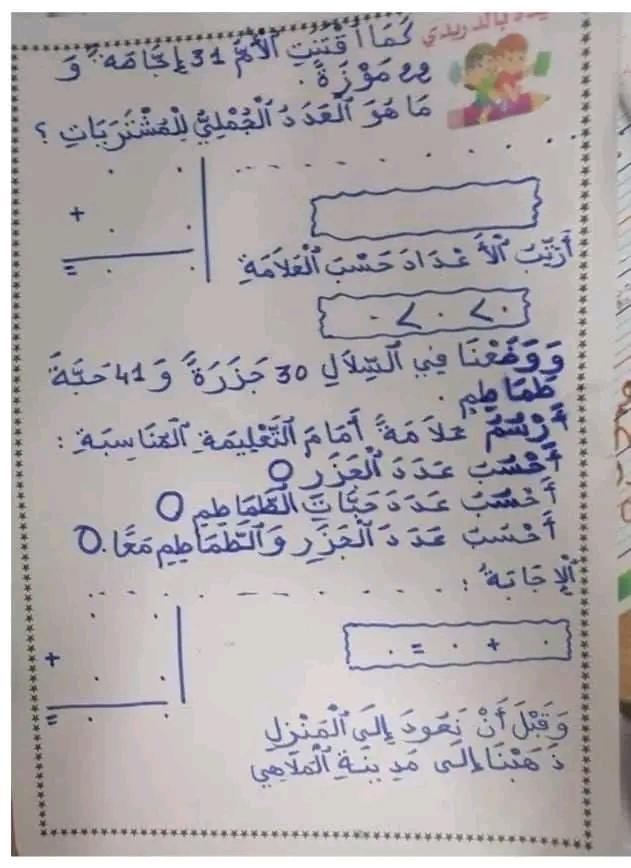 بالدريدي
كَمَا اقْتَنَتِ الْأُمُّ 31 إِجَّاصَةً وَ
22 مَوْزَةً.
مَا هُوَ الْعَدَدُ الْجُمْلِيُّ لِلْمُشْتَرَيَاتِ ؟
. . . . . . . . . . . .
+
=
أُرَتِّبُ الْأَعْدَادَ حَسْبَ الْعَلَامَةِ
. > . > .
وَوَضَعْنَا فِي السِّلَالِ 30 جَزَرَةً وَ 41 حَبَّةَ
طَمَاطِمٍ.
أَرْسُمُ عَلَامَةً أَمَامَ التَّعْلِيمَةِ الْمُنَاسِبَةِ :
أَحْسُبُ عَدَدَ الْجَزَرِ O
أَحْسُبُ عَدَدَ حَبَّاتِ الطَّمَاطِمِ O
أَحْسُبُ عَدَدَ الْجَزَرِ وَالطَّمَاطِمِ مَعًا. O
الْإِجَابَةُ : . . . . . . . . . . . .
. + . = .
+
=
وَقَبْلَ أَنْ نَعُودَ إِلَى الْمَنْزِلِ
ذَهَبْنَا إِلَى مَدِينَةِ الْمَلَاهِي